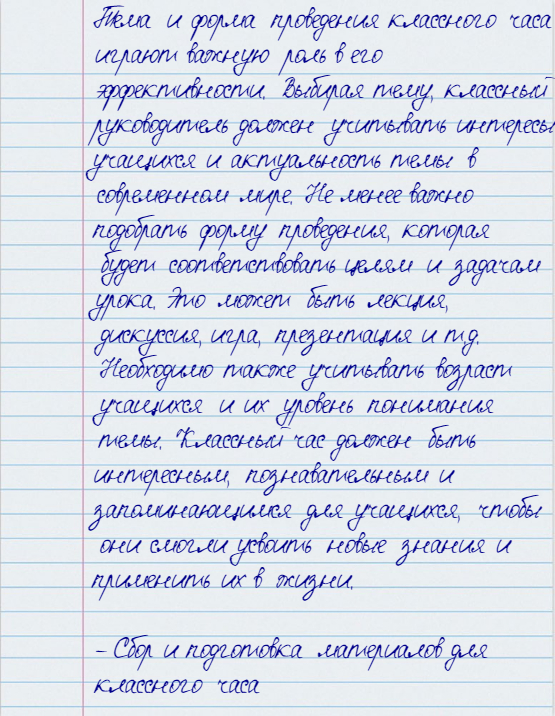 Тема и форма проведения классного часа
играют важную роль в его
эффективности. Выбирая тему, классный
руководитель должен учитывать интересы
учащихся и актуальность темы в
современном мире. Не менее важно
подобрать форму проведения, которая
будет соответствовать целям и задачам
урока. Это может быть лекция,
дискуссия, игра, презентация и т.д.
Необходимо также учитывать возраст
учащихся и их уровень понимания
темы. Классный час должен быть
интересным, познавательным и
запоминающимся для учащихся, чтобы
они смогли усвоить новые знания и
применить их в жизни.
- Сбор и подготовка материалов для
классного часа